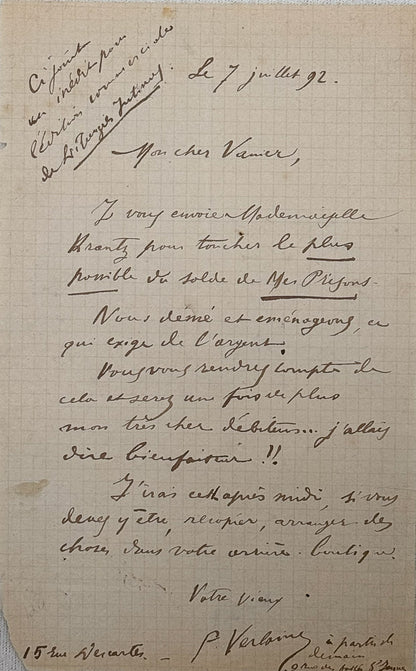 Ci joint
un inédit pour
l'édition commerciale
de Liturgies Intimes.
Le 7 juillet 92.
Mon cher Vanier,
Je vous envoie Mademoiselle
Krantz pour toucher le plus
possible du solde de Mes Prisons.
Nous démé et eménageons, ce
qui exige de l'argent.
Vous vous rendrez compte de
cela et serez un fois de plus
mon très cher débiteur... j'allais
dire bienfaiteur !!
J'irais cet après midi, si vous
devez y être, recopier, arranger des
choses dans votre arrière-boutique.
Votre vieux
P. Verlaine
15 rue Descartes. —
à partir de
demain
9 rue des fossés St Jacques